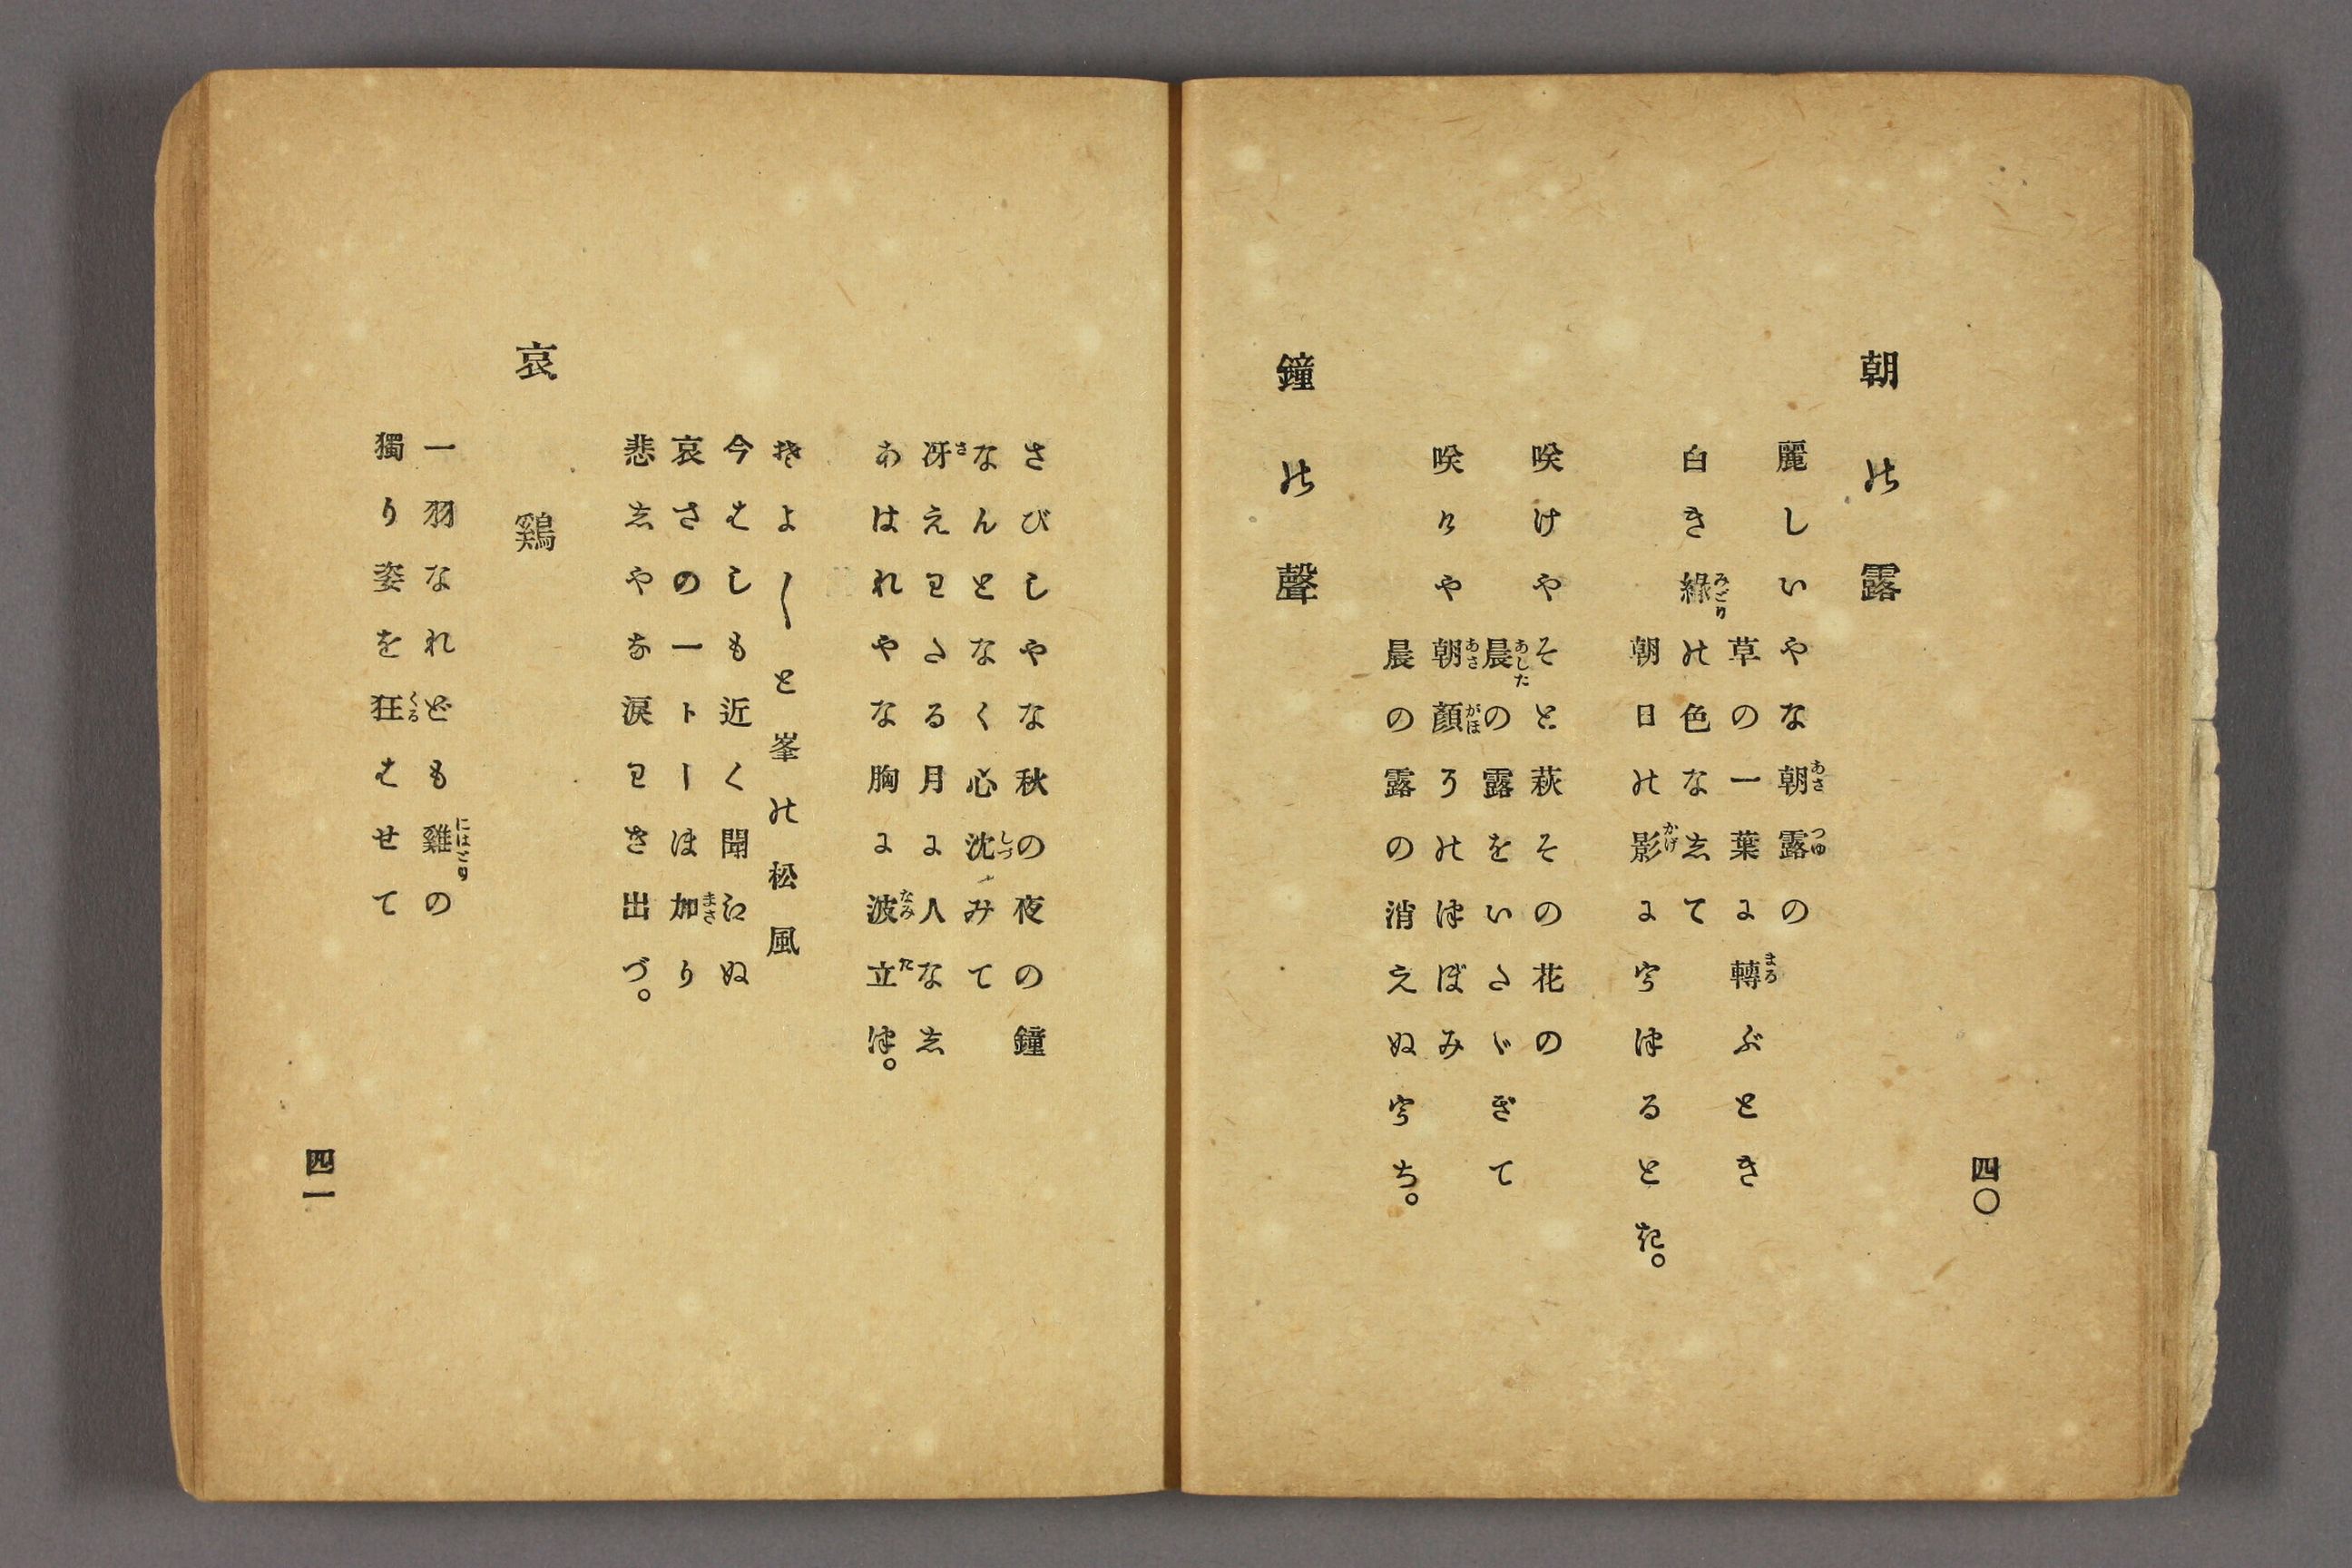 四〇
朝の露
麗しいやな朝(あさ)露(つゆ)の
草の一葉に轉(まろ)ぶとき
白き綠(みどり)の色なして
朝日の影(かげ)にうつるとき。
咲けやそと萩その花の
晨(あした)の露をいたゞきて
咲けや朝(あさ)顏(がほ)そのつぼみ
晨の露の消えぬうち。
鐘の聲
さびしやな秋の夜の鐘
なんとなく心沈(しづ)みて
冴(さ)えわたる月に人なし
あはれやな胸に波(なみ)立(た)つ。
そよ〳〵と峯の松風
今はしも近く聞えぬ
哀さの一トしほ加(まさ)り
悲しやな涙わき出づ。
哀鷄
一羽なれども雞(にはとり)の
獨り姿を狂(くる)はせて
四一